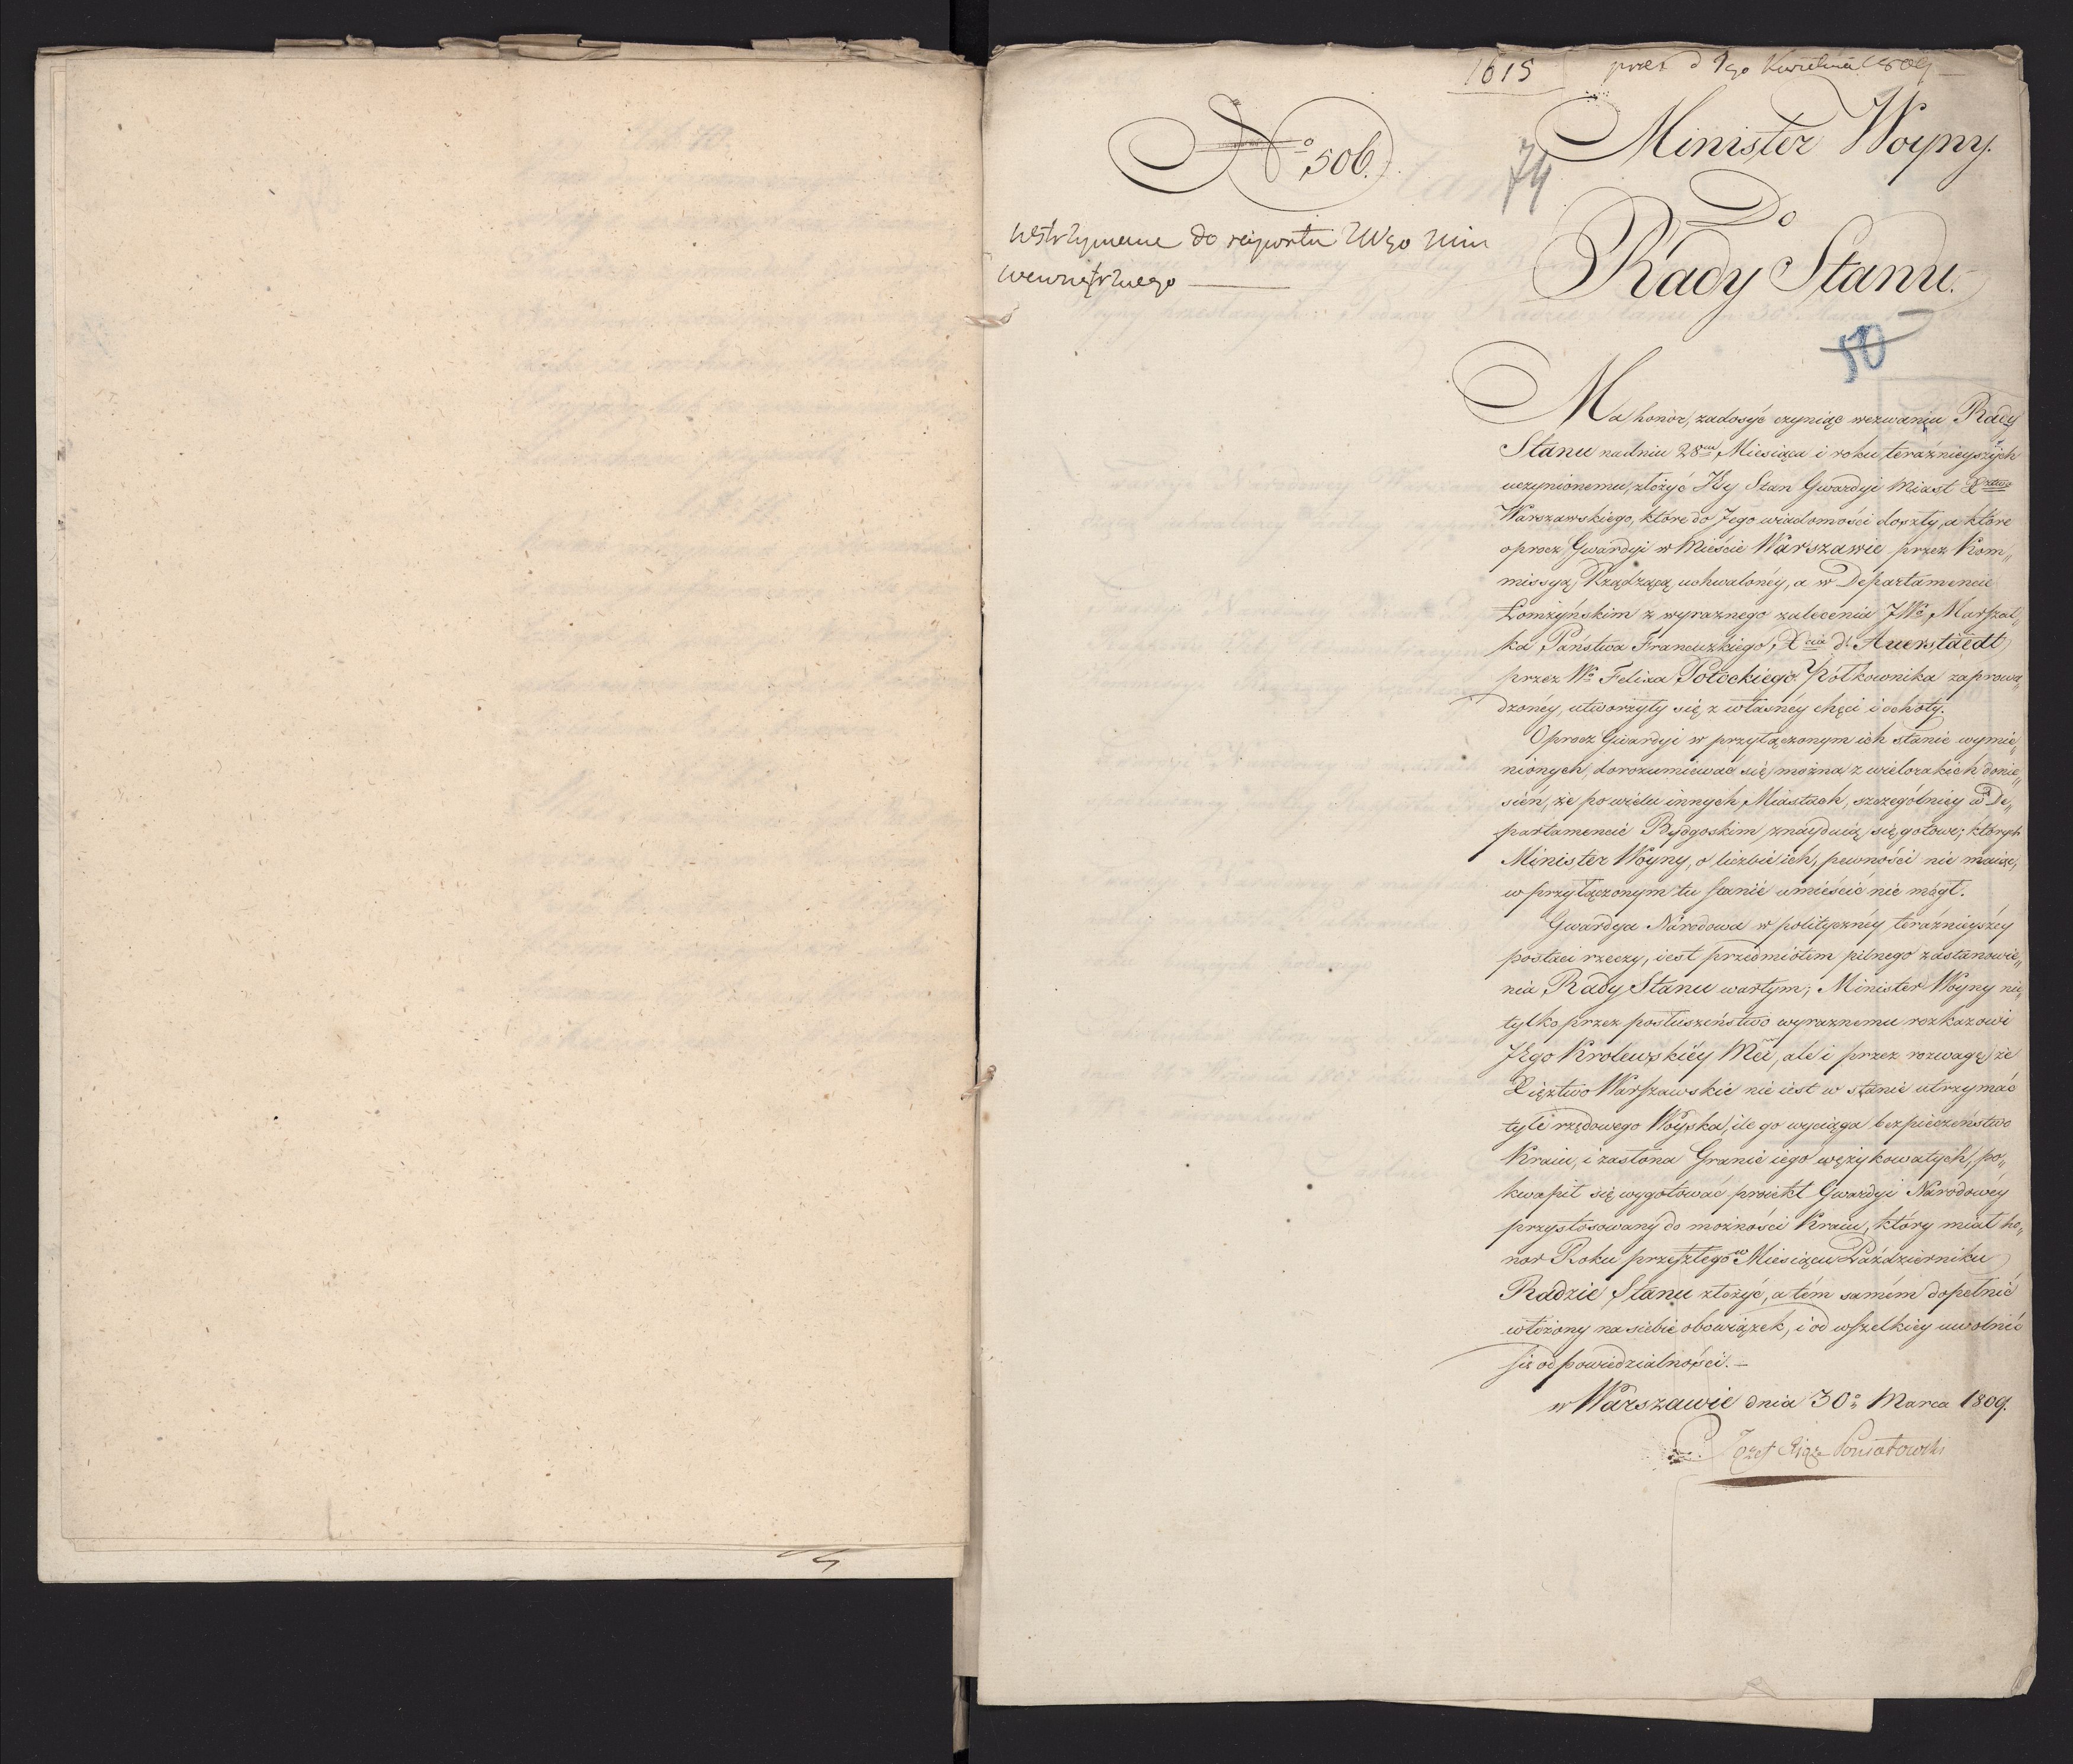 1615
prez d 1go Kwietnia 1809
No 506.
74
Minister Woyny.
Do
Rady Stanu.
wstrzymane do raportu JWgo Min
wewnętrznego
50
Ma honor, zadosyć czyniąc wezwaniu Rady
Stanu na dniu 28em Miesiąca i roku teraźnieyszych
uczynionemu, złożyć Jey Stan Gwardyi Miast Xztwa
Warszawskiego, które do Jego wiadomości doszły, a które
oprocz Gwardyi w Mieście Warszawie przez Kom„
missyą Rządzącą uchwalonéy, a w Departamencie
Łomżyńskim z wyraznego zalecenia JWo Marszał„
ka Państwa Francuzkiego, Xcia d'Auerstaedt
przez Wo Felixa Potockiego Półkownika zaprowa„
dzonéy, utworzyły się z własnéy chęci i ochoty.
Oprocz Gwardyi w przyłączonym ich stanie wymie„
nionych, dorozumiewać się można z wielorakich donie„
sień, że po wielu innych Miastach, szczególniey w De„
partamencie Bydgoskim znayduią się gotowe; których
Minister Woyny, o liczbie ich, pewności nie maiąc,
w przyłączonym tu stanie umieścić nie mógł.
Gwardya Narodowa w politycznéy teraźnieyszéy
postaci rzeczy, iest przedmiotem pilnego zastanowie„
nia Rady Stanu wartym; Minister Woyny nie
tylko przez posłuszeństwo wyraznemu rozkazowi
JEgo Krolewskiéy Mci, ale i przez rozwagę że
Xięztwo Warszawskie nie iest w stanie utrzymać
tyle rzędowego Woyska, ile go wyciąga bezpieczeństwo
Kraiu, i zasłona Granic iego wężykowatych, po„
kwapił się wygotować proiekt Gwardyi Narodowéy
przystosowany do możności Kraiu, który miał ho„
nor Roku przeszłego w Miesiącu Październiku
Radzie Stanu złożyć, a tém samém dopełnić
włożony na siebie obowiązek, i od wszelkiey uwolnić
się odpowiedzialności. —
w Warszawie dnia 30o Marca 1809.
Józef Xiąże Poniatowski